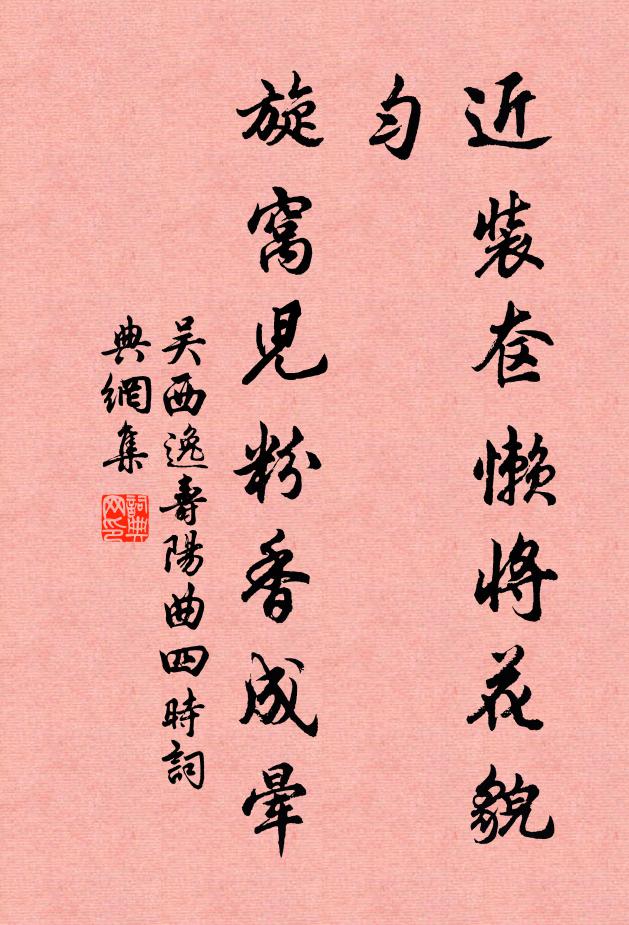 近裝奁懶將花貌
匀
旋窩児粉香成暈
吴西逸壽陽曲四時詞
典網集
詞典網印